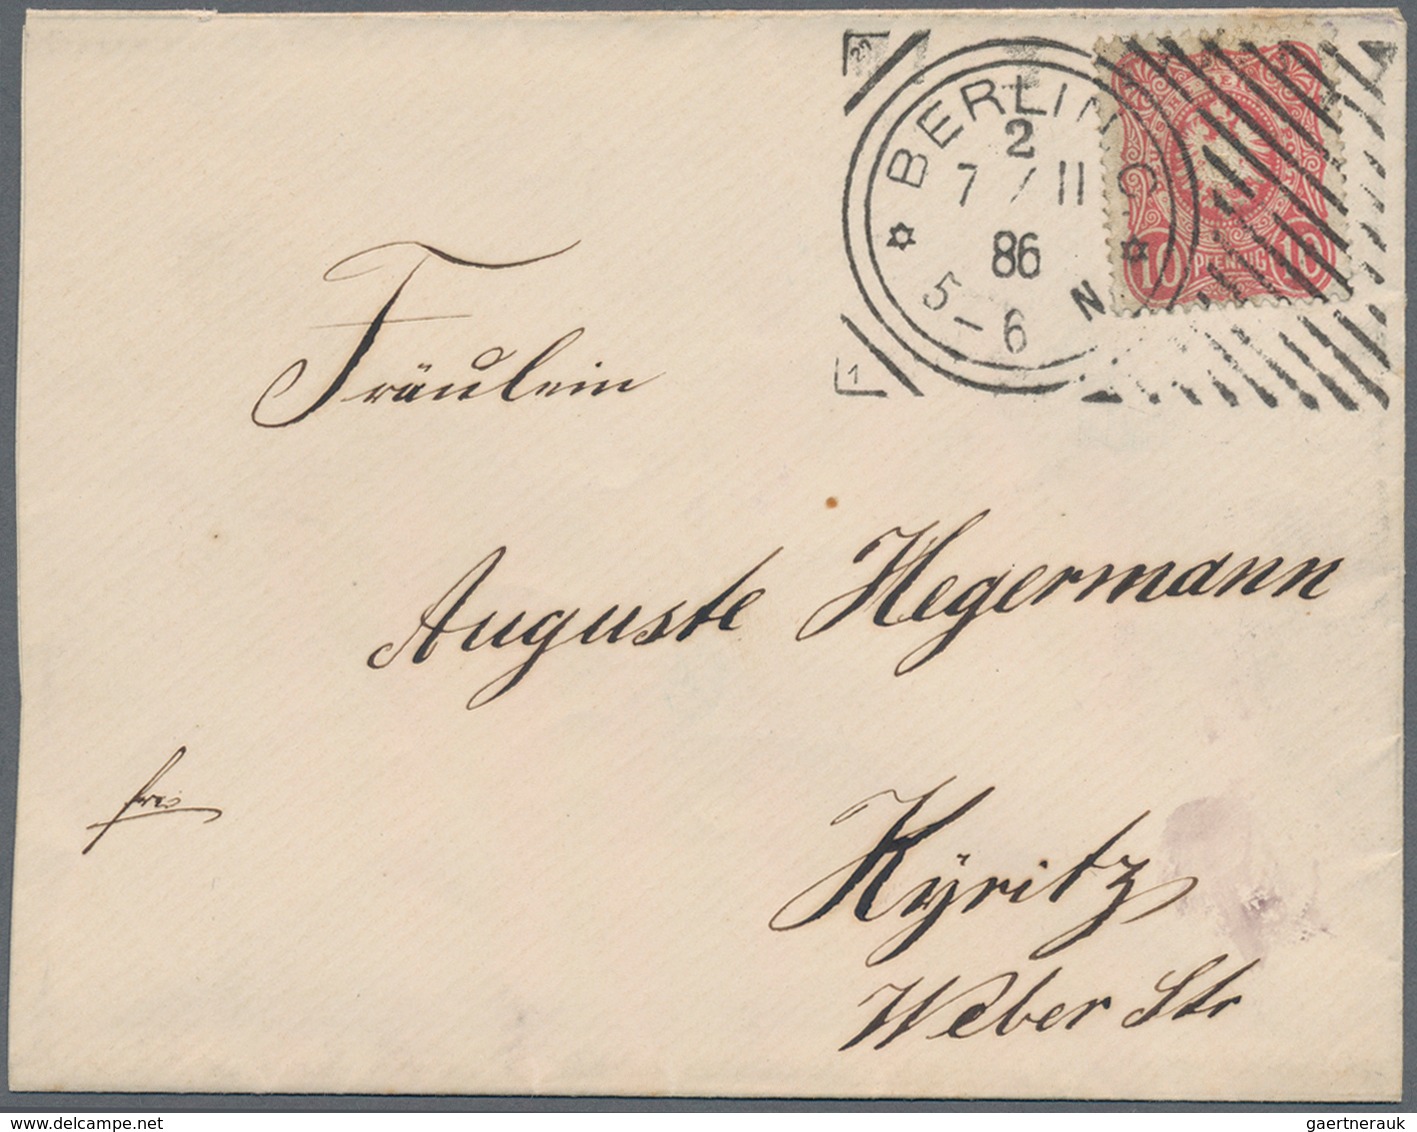 BERLIN C
2
7 / 11
86
5-6 N
27
1
10 PFENNIG 10
Fräulein
Auguste Hegermann
frco
Kÿritz
Weber Str
www.delcampe.net
gaertnerauk